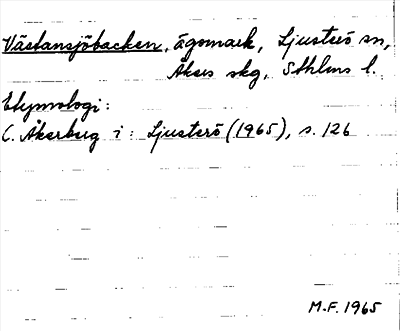 Västansjöbacken, ägomark, Ljusterö sn,
Åkers skg, Sthlms l.
Etymologi:
C. Åkerberg i: Ljusterö (1965), s. 126
M.F. 1965